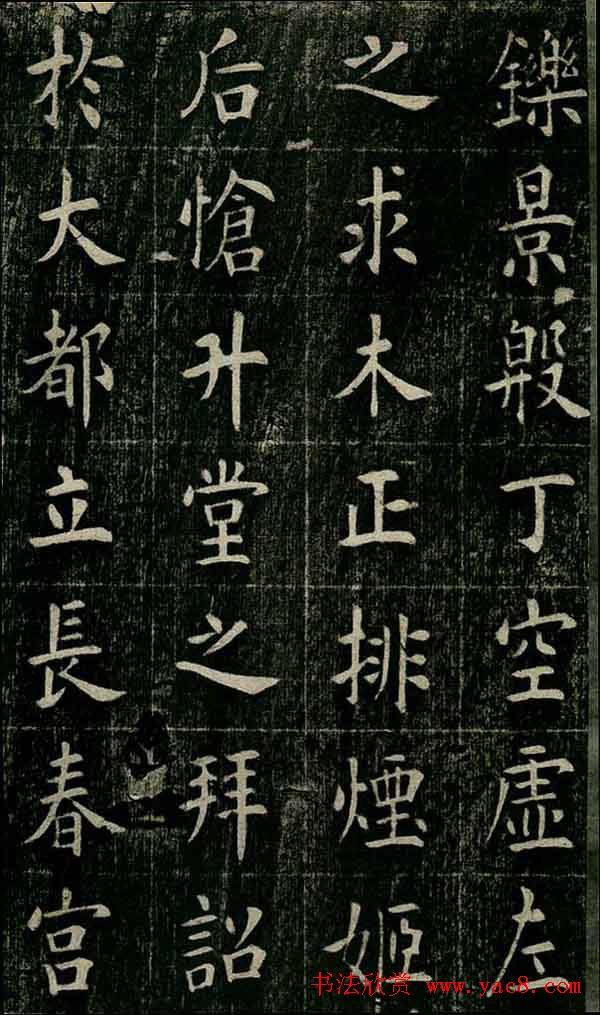 鑠景丁空虛左
之求木正排煙姬
后愴升堂之拜詔
於大都立長春宮
书法欣赏 www.yac8.com